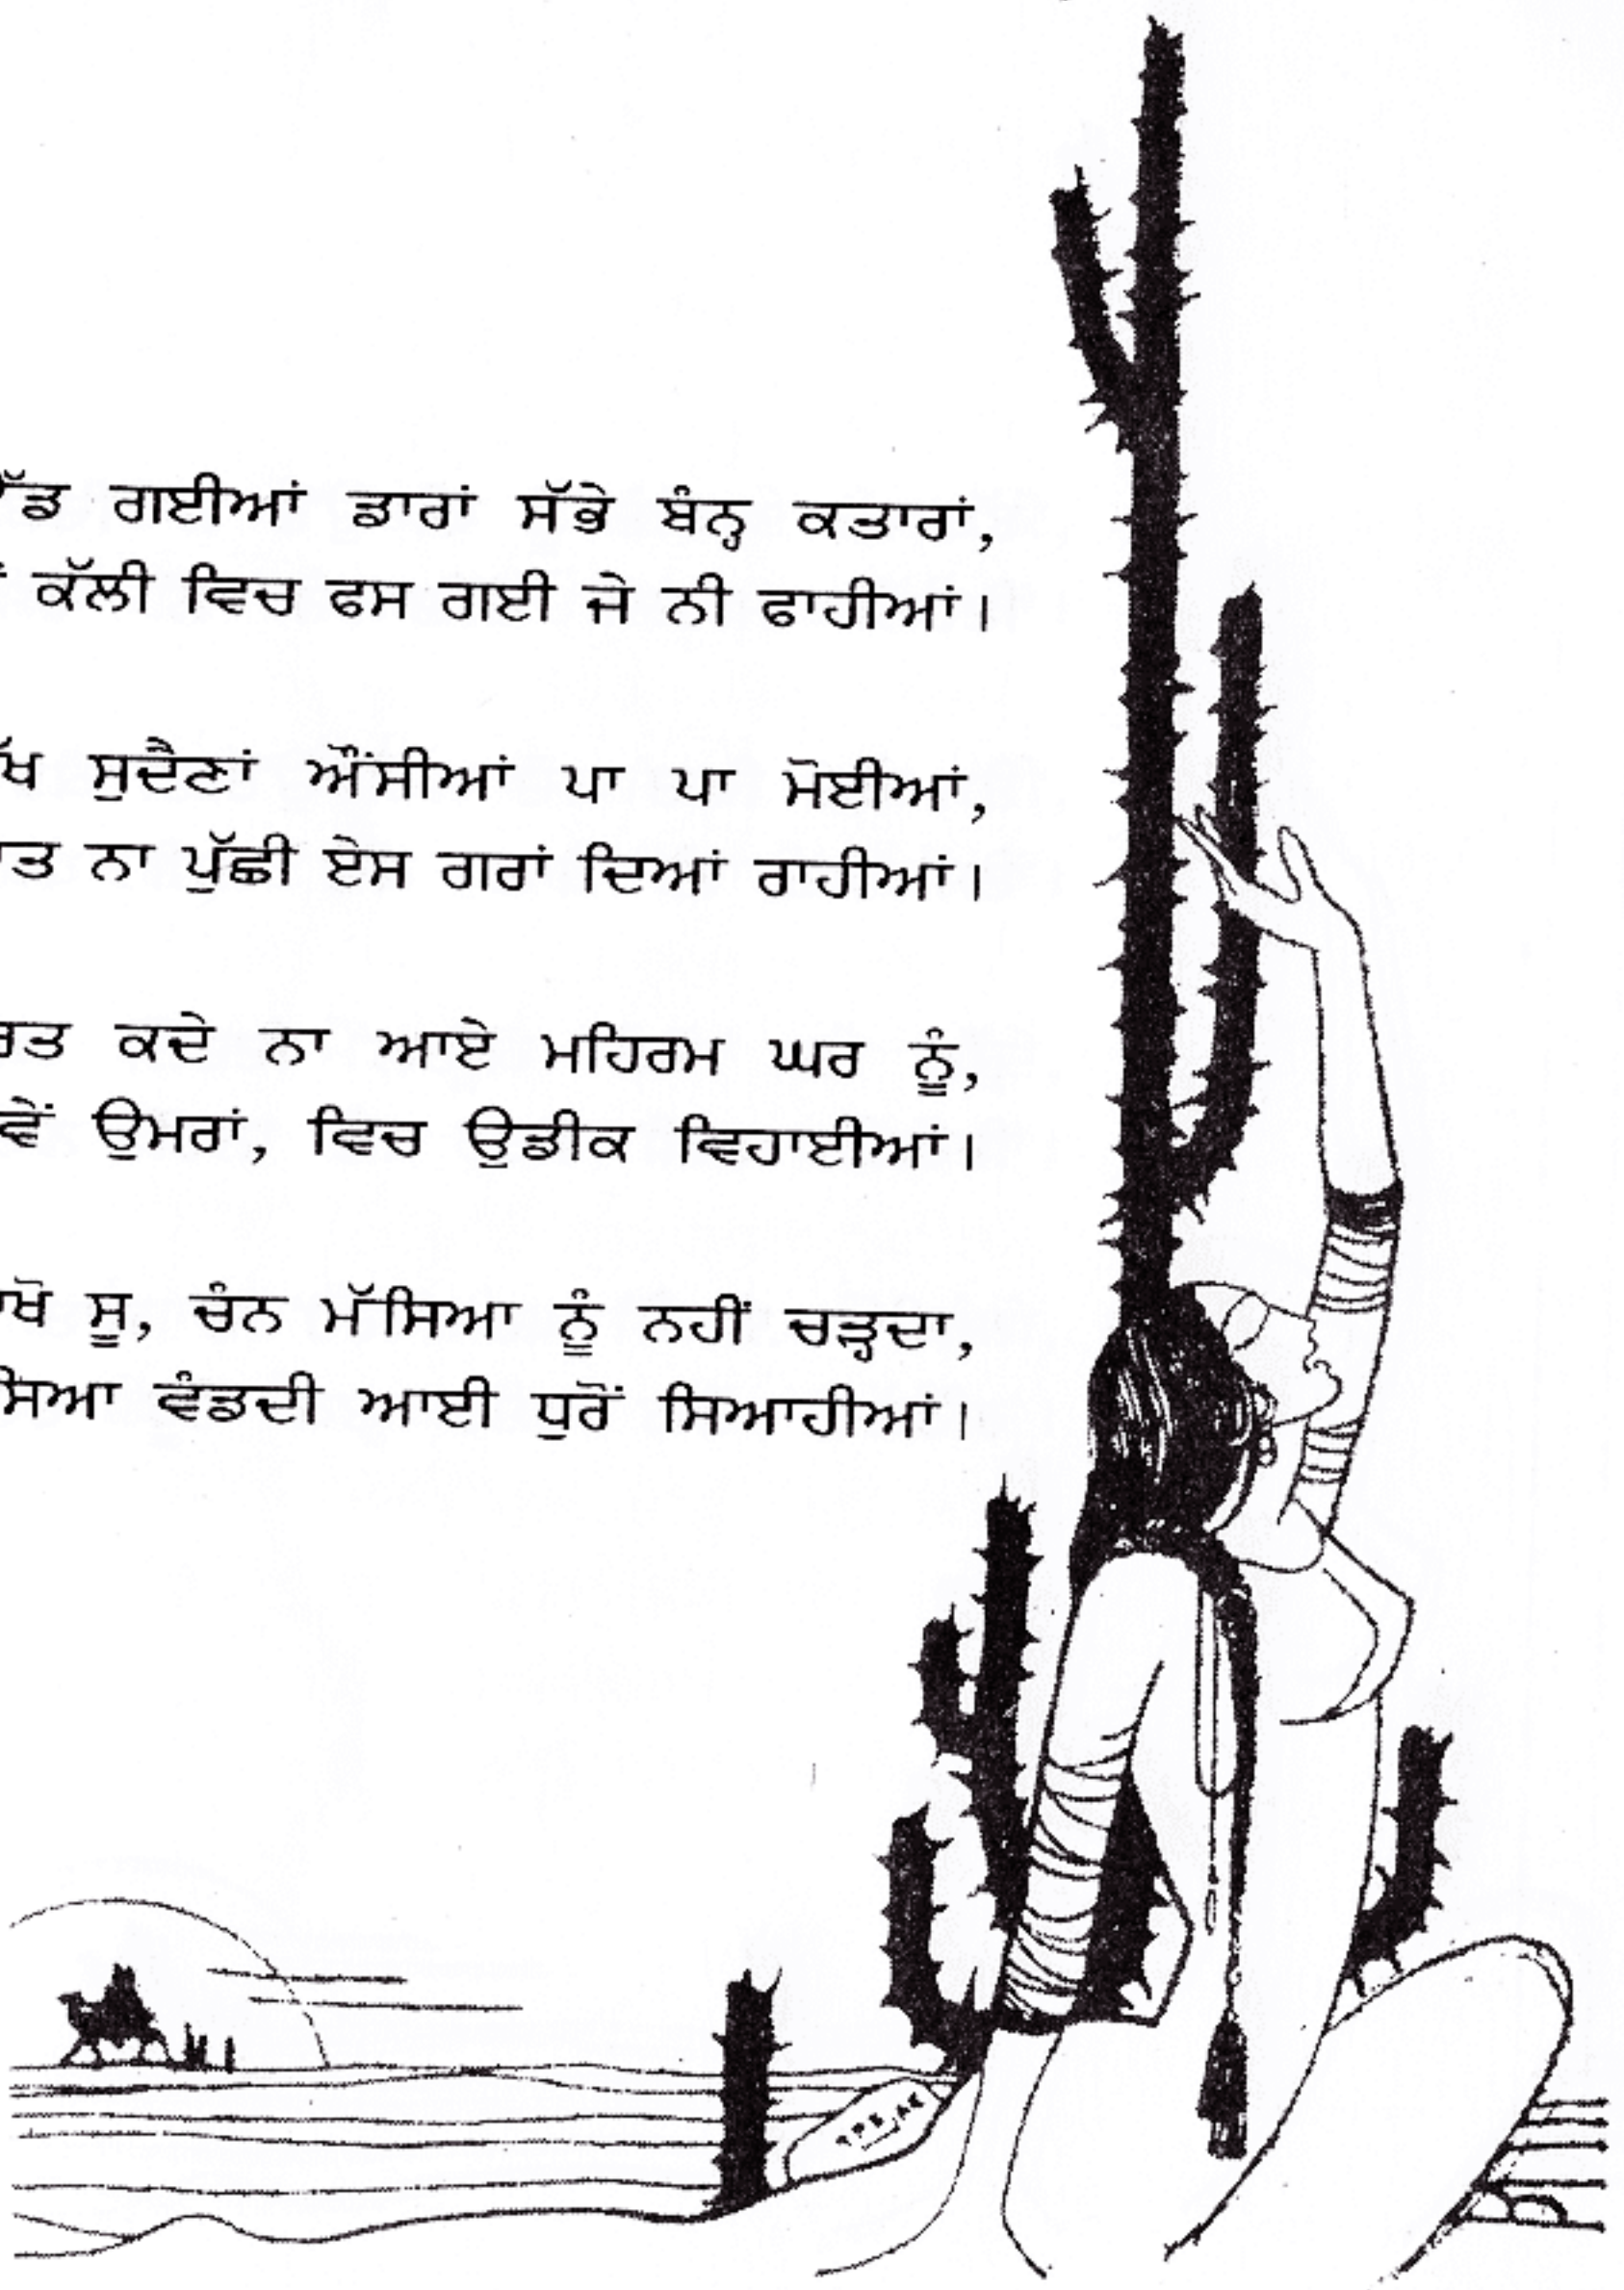 ਗਈਆਂ ਡਾਰਾਂ ਸੱਭੇ ਬੰਨ੍ਹ ਕਤਾਰਾਂ,
ਕੱਲੀ ਵਿਚ ਫਸ ਗਈ ਜੇ ਨੀ ਫਾਹੀਆਂ।
ਸੁਦੈਣਾਂ ਔਂਸੀਆਂ ਪਾ ਪਾ ਮੋਈਆਂ,
ਨਾ ਪੁੱਛੀ ਏਸ ਗਰਾਂ ਦਿਆਂ ਰਾਹੀਆਂ।
ਕਦੇ ਨਾ ਆਏ ਮਹਿਰਮ ਘਰ ਨੂੰ,
ਉਮਰਾਂ, ਵਿਚ ਉਡੀਕ ਵਿਹਾਈਆਂ।
ਸੂ, ਚੰਨ ਮੱਸਿਆ ਨੂੰ ਨਹੀਂ ਚੜ੍ਹਦਾ,
ਵੰਡਦੀ ਆਈ ਧੁਰੋਂ ਸਿਆਹੀਆਂ।